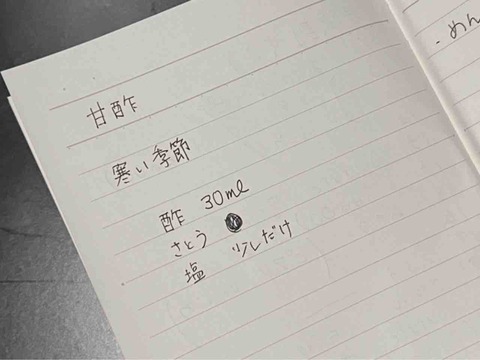 甘酢
寒い季節
酢 30ml
さとう
塩 少しだけ
・めん